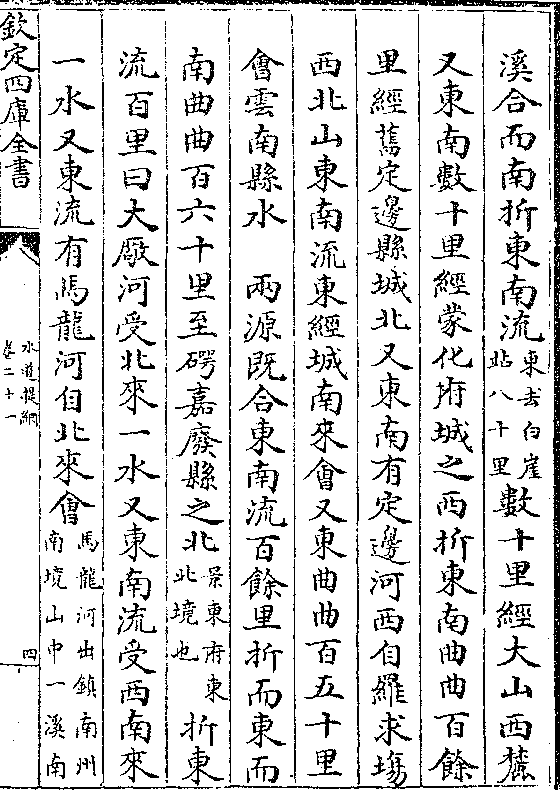 溪合而南折東南流東去白崖站八十里數十里經大山西麓
又東南數十里經蒙化府城之西折東南曲曲百餘
里經舊定邊縣城北又東南有定邊河西自羅求塲
西北山東南流東經城南來會又東曲曲百五十里
會雲南縣水　兩源既合東南流百餘里折而東而
南曲曲百六十里至碍嘉廢縣之北景東府東北境也折東
流百里曰大廠河受北來一水又東南流受西南來
一水又東流有馬龍河自北來會馬龍河出鎮南州南境山中一溪南
欽定四庫全書
水道提綱
卷二十一
四